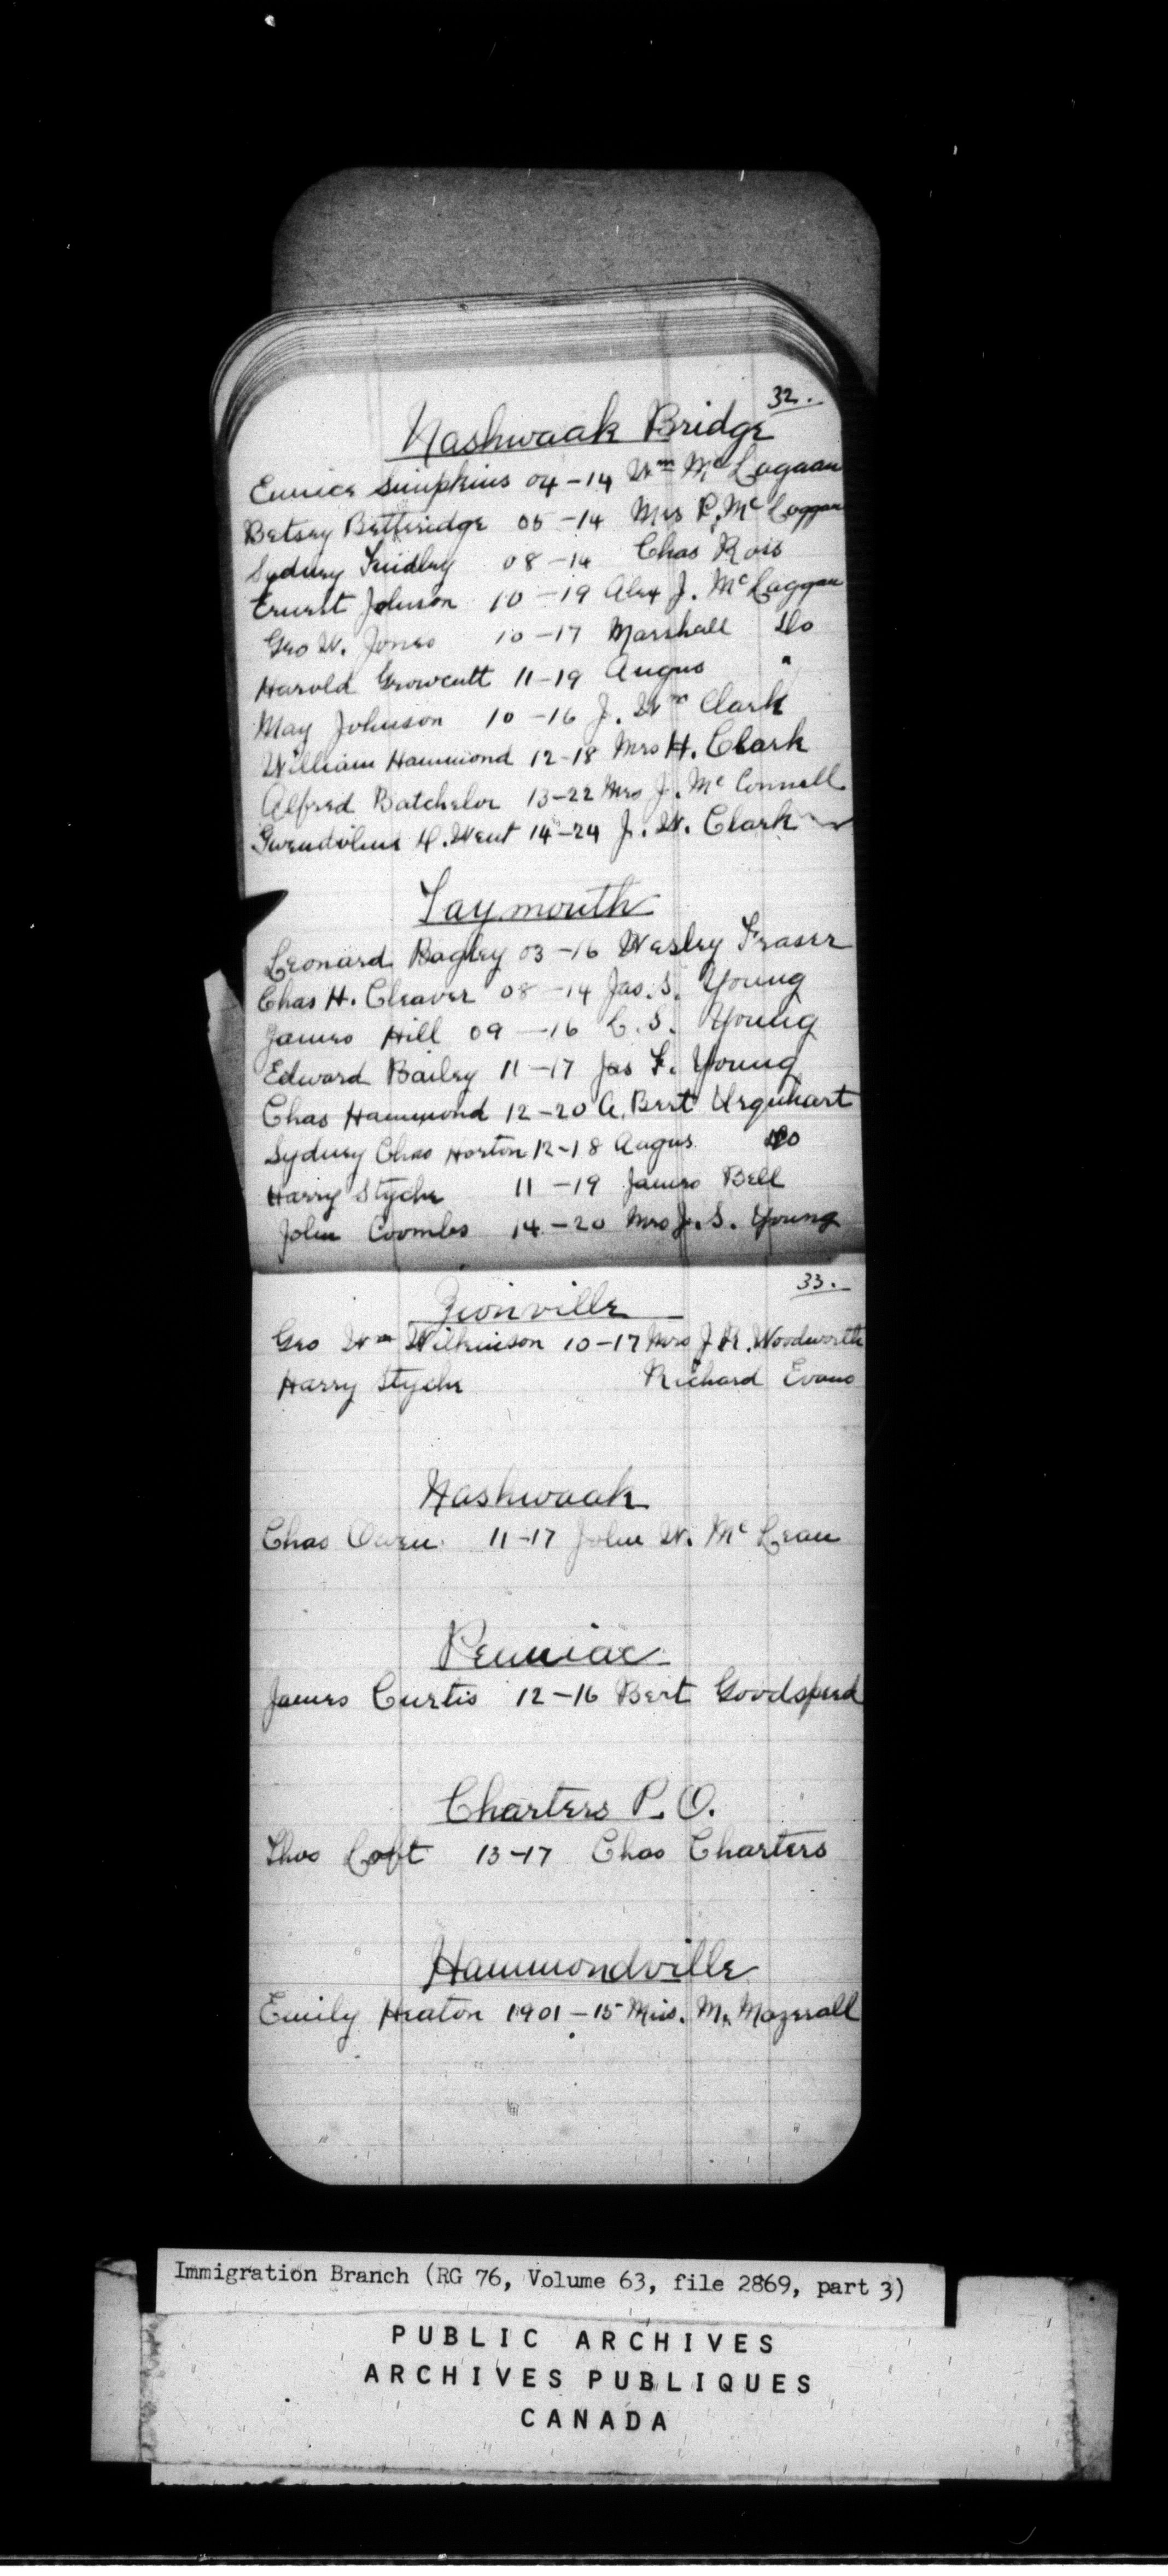 32.
Nashwaak Bridge
Eunice Simpkins 04-14 Wm McLagaan
Betsey Betteridge 05-14 Mrs P. McLaggan
Sydney 08-14 Chas Ross
Ernest Johnson 10-19 Alex J. McLaggan
Geo W. Jones 10-17 Marshall Do
Harold Growcutt 11-19 Angus "
May Johnson 10-16 J. Wm Clark
William Hammond 12-18 Mrs H. Clark
Alfred Batchelor 13-22 Mrs J. McConnell
Gwendoline H. Went 14-24 J. W. Clark
Taymouth
Leonard Bagley 03-16 Wesley Fraser
Chas H. Cleaver 08-14 Jas. S. Young
James Hill 09-16 C. S. Young
Edward Bailey 11-17 Jas F. Young
Chas Hammond 12-20 A. Bert Urquhart
Sydney Chas Horton 12-18 Angus Do
Harry Styche 11-19 James Bell
John Coombs 14-20 Mrs J. S. Young
33.
Zionville
Geo Wm Wilkinson 10-17 Mrs J. R. Woodworth
Harry Styche Richard Evans
Nashwaak
Chas Owen 11-17 John W. McLean
Penniac
James Curtis 12-16 Bert Goodspeed
Charters P.O.
Thos 13-17 Chas Charters
Hammondville
Emily Heaton 1901-15 Miss. M. Mazerall
Immigration Branch (RG 76, Volume 63, file 2869, part 3)
PUBLIC ARCHIVES
ARCHIVES PUBLIQUES
CANADA